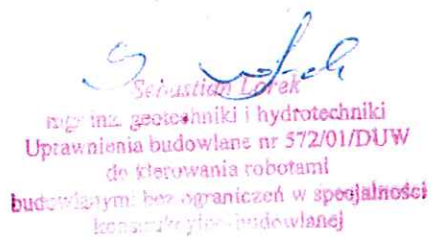 Sebastian Lorek
mgr inż. geotechniki i hydrotechniki
Uprawnienia budowlane nr 572/01/DUW
do kierowania robotami
budowlanymi bez ograniczeń w specjalności
konstrukcyjno-budowlanej